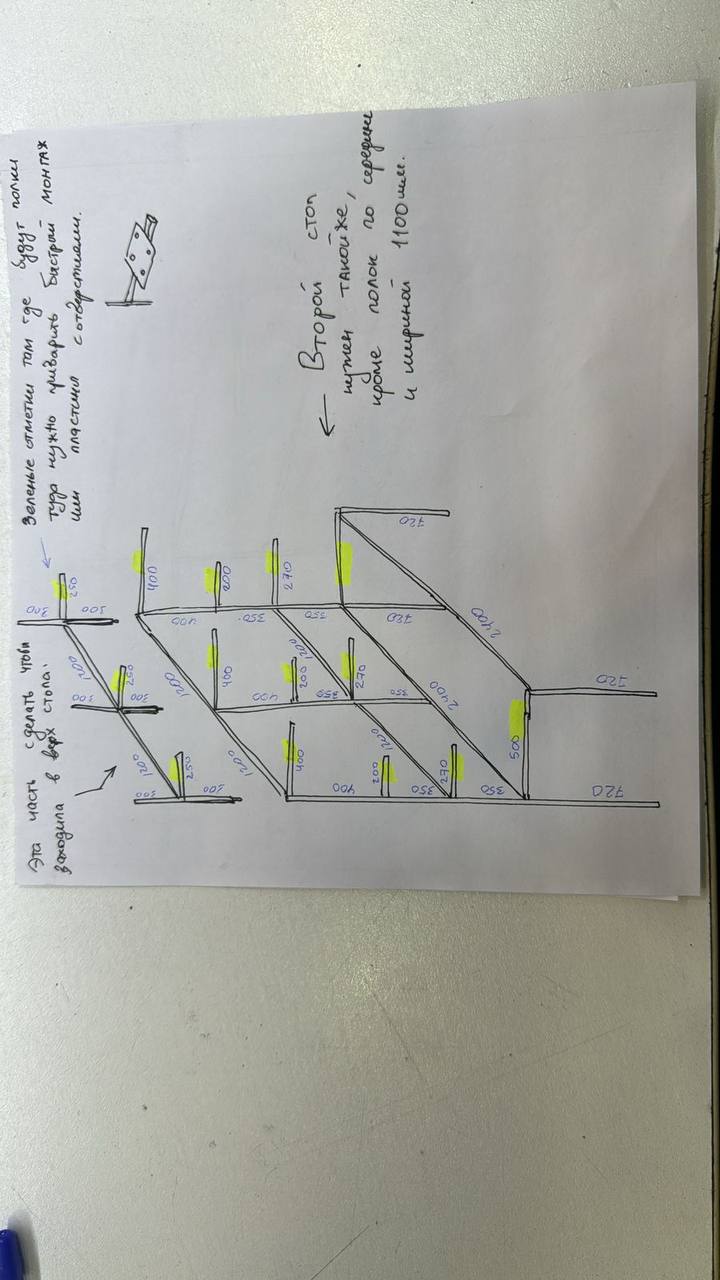 Эта часть сделать чтобы
заходила в верх стола.
Зеленые отметки там где будут полки
туда нужно приварить быстрый монтаж
или пластина с отверстиями.
300
250
1200
300
300
250
1200
300
300
250
300
400
1200
400
200
350
1200
400
270
400
200
1200
400
350
350
270
400
200
1200
720
350
720
350
270
2400
350
2400
500
720
720
← Второй стол
нужен такойже,
кроме полок по середине
и шириной 1100мм.